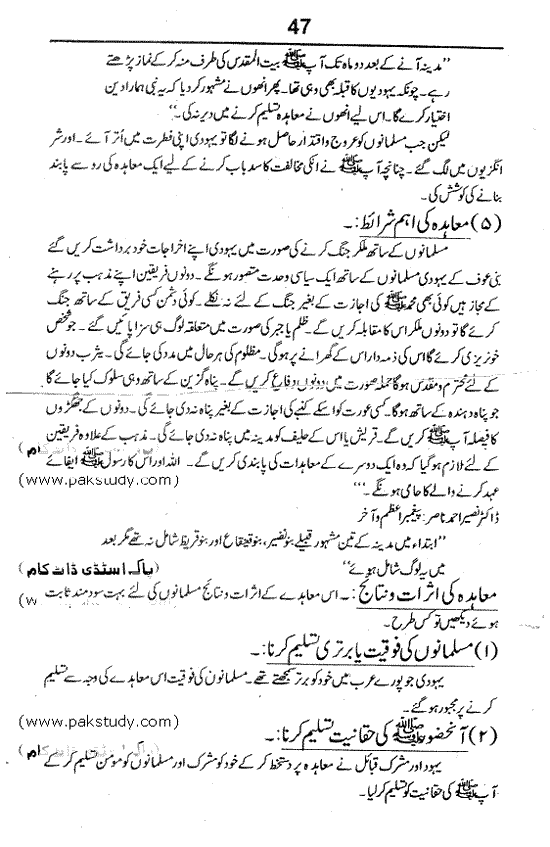 47
”مدینہ آنے کے بعد دو ماہ تک آپ ﷺ بیت المقدس کی طرف منہ کر کے نماز پڑھتے
رہے۔ چونکہ یہودیوں کا قبلہ بھی وہی تھا۔ پھر انھوں نے مشہور کر دیا کہ یہ نبی ہمارا دین
اختیار کرے گا۔ اس لیے انھوں نے معاہدہ تسلیم کرنے میں دیر نہ کی۔“
لیکن جب مسلمانوں کو عروج و اقتدار حاصل ہونے لگا تو یہودی اپنی فطرت میں اُتر آئے۔ اور شر
انگزیوں میں لگ گئے۔ چنانچہ آپ ﷺ نے انکی مخالفت کا سدباب کرنے کے لیے ایک معاہدہ کی رو سے پابند
بنانے کی کوشش کی۔
(۵) معاہدہ کی اہم شرائط:۔
مسلمانوں کے ساتھ ملکر جنگ کرنے کی صورت میں یہودی اپنے اخراجات خود برداشت کریں گے
بنی عوف کے یہودی مسلمانوں کے ساتھ ایک سیاسی وحدت متصور ہونگے۔ دونوں فریقین اپنے مذہب پر رہنے
کے مجاز ہیں کوئی بھی محمد ﷺ کی اجازت کے بغیر جنگ کے لئے نہ نکلے۔ کوئی دشمن کسی فریق کے ساتھ جنگ
کرے گا تو دونوں ملکر اس کا مقابلہ کریں گے۔ ظلم یا جبر کی صورت میں متعلقہ لوگ ہی سزا پائیں گے۔ جو شخص
خونریزی کرے گا اس کی ذمہ دار اس کے گھرانے پر ہوگی۔ مظلوم کی ہر حال میں مدد کی جائے گی۔ یثرب دونوں
کے لئے محترم و مقدس ہوگا حملہ صورت میں دونوں دفاع کریں گے۔ پناہ گزین کے ساتھ وہی سلوک کیا جائے گا
جو پناہ دہندہ کے ساتھ ہوگا۔ کسی عورت کو اسکے کنبے کی اجازت کے بغیر پناہ نہ دی جائے گی۔ دونوں کے جھگڑوں
کا فیصلہ آپ ﷺ کریں گے۔ قریش یا اس کے حلیف کو مدینہ میں پناہ نہ دی جائے گی۔ مذہب کے علاوہ فریقین
کے لئے لازم ہوگیا کہ وہ ایک دوسرے کے معاہدات کی پابندی کریں گے۔ اللہ اور اس کا رسول ﷺ ایفائے
(www.pakstudy.com)
عہد کرنے والے کا حامی ہونگے۔“
ڈاکٹر نصیر احمد ناصر: پیغمبر اعظم و آخر
”ابتداء میں مدینہ کے تین مشہور قبیلے بنو نضیر، بنو قینقاع اور بنو قریظ شامل نہ تھے مگر بعد
میں یہ لوگ شامل ہوئے“
(پاک اسٹڈی ڈاٹ کام)
معاہدہ کی اثرات و نتائج:۔ اس معاہدے کے اثرات و نتائج مسلمانوں کی لئے بہت سودمند ثابت
ہوئے دیکھیں تو کس طرح۔
(۱) مسلمانوں کی فوقیت یا برتری تسلیم کرنا:۔
یہودی جو پورے عرب میں خود کو برتر سمجھتے تھے۔ مسلمانوں کی فوقیت اس معاہدے کی وجہ سے تسلیم
کرنے پر مجبور ہو گئے۔
(www.pakstudy.com)
(۲) آنحضور ﷺ کی حقانیت تسلیم کرنا:۔
یہود اور مشرک قبائل نے معاہدہ پر دستخط کر کے خود کو مشرک اور مسلمانوں کو مومن تسلیم کر کے
آپ ﷺ کی حقانیت کو تسلیم کر لیا۔